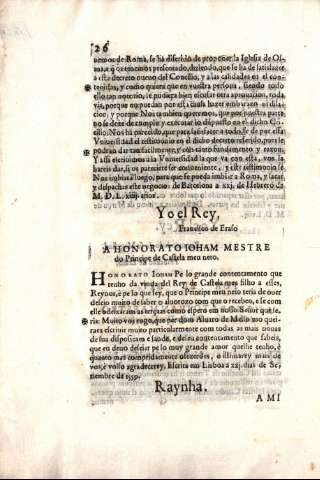 26
uemos de Roma, se ha diferido de proponer la Iglesia de Os-
ma, q̃ os tenemos presentado, diziendo, que se ha de satisfazer
a este decreto nueuo del Concilio, y a las calidades en el con-
tenidas, y como quiera que en vuestra persona, siendo todo
ello tan notorio, se pudiera bien escusar otra aprouacion, toda
via, porque no puedan por esta causa hazer embaraço ni dila-
cion, y porque Nos tambien queremos, que por nuestra parte
no se dexe de cumplir y executar lo dispuesto en el dicho Con-
cilio: Nos ha parecido, que para satisfazer a todo, se de por essa
Vniuersidad el testimonio en el dicho decreto referido, pues le
podran dar tan facilmente, y con tanto fundamento y razon.
Y assi escriuimos a la Vniuersidad la que va con esta, vos la
hareis dar, si os pareciere ser conueniente, y esse testimonio se
Nos embiará luego, para que se pueda imbiar a Roma, y sacar,
y despachar este negocio: de Barcelona a xxj. de Hebrero de
M. D. L. xiiij. años.
Yo el Rey,
Francisco de Eraso
A HONORATO IOHAM MESTRE
do Principe de Castela meu neto.
HONORATO Ioham Pe lo grande contentamento que
tenho da vinda del Rey de Castela meu filho a esses
Reynos, e pe lo que sey, que o Principe meu neto tera de o ver
desejo muito de saber o aluoroço com que o recebeo, e se com
elle
ria: Muito vos rogo, que per dom Aluaro de Mello me quei-
raes escriuir muito particularmente com todas as mais nouas
de sua disposicam e saude, e de meu contentamento que sabeis,
que em deuo sentir pe lo muy grande amor que lhe tenho, e
quanto mas compridamente o fizerdes, o
vos, e vollo agradecerey. Escrita em Lisboa a 22j. dias de Se-
tiembre de 1559.
Raynha.
A MI